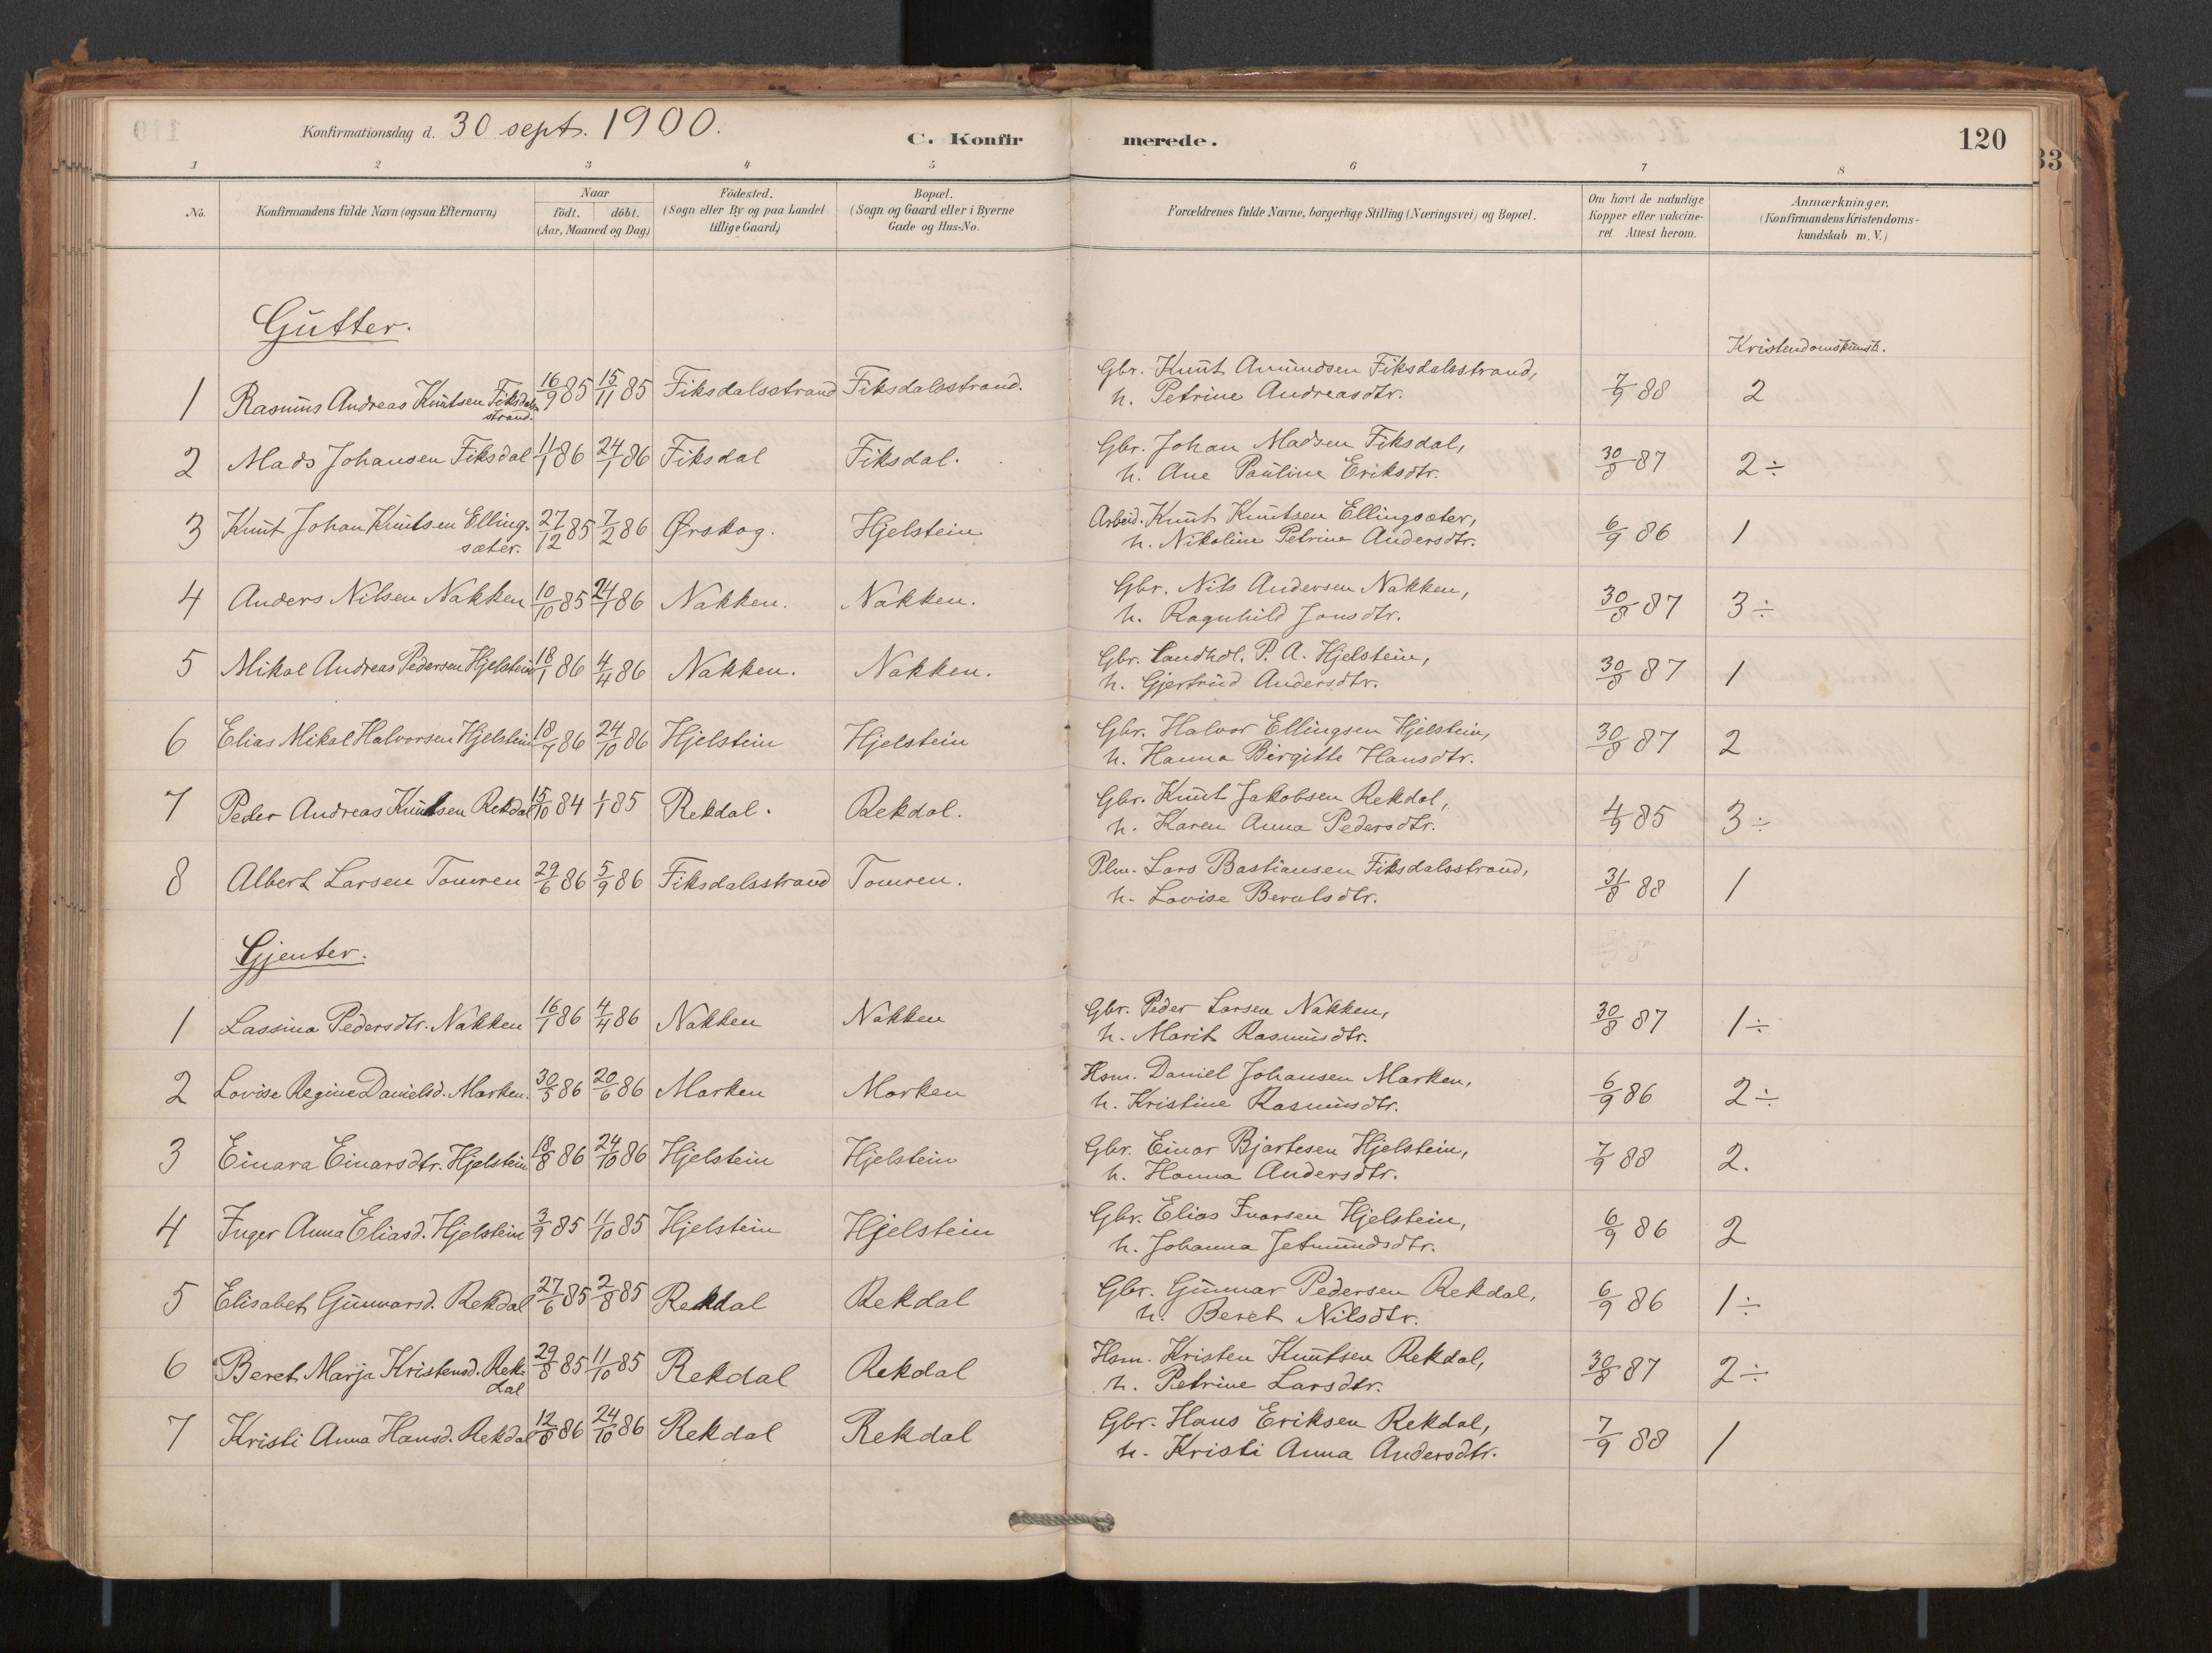 Konfirmationsdag d. 30 sept. 1900.
C. Konfirmerede.
120
33
1 2 3 4 5 6 7 8
No.
Konfirmandens fulde Navn (ogsaa Efternavn)
Naar
födt. döbt.
(Aar, Maaned og Dag)
Födested.
(Sogn eller By og paa Landet
tillige Gaard)
Bopæl.
(Sogn og Gaard eller i Byerne
Gade og Hus-No.
Forældrenes fulde Navne, borgerlige Stilling (Næringsvei) og Bopæl.
Om havt de naturlige
Kopper eller vakcine-
ret. Attest herom.
Anmærkninger.
(Konfirmandens Kristendoms-
kundskab m.V.)
Gutter.
Kristendomskunsk.
1 Rasmus Andreas Knutsen Fiksdals- 16/9 85 15/11 85 Fiksdalsstrand Fiksdalsstrand. Gbr. Knut Amundsen Fiksdalsstrand, 7/9 88 2
strand. h. Petrine Andreasdtr.
2 Mads Johansen Fiksdal 11/1 86 24/1 86 Fiksdal Fiksdal. Gbr. Johan Madsen Fiksdal, 30/8 87 2 ÷
h. Ane Pauline Eriksdtr.
3 Knut Johan Knutsen Elling- 27/12 85 7/2 86 Ørskog. Hjelstein Arbeid. Knut Knutsen Ellingsæter, 6/9 86 1
sæter. h. Nikoline Petrine Andersdtr.
4 Anders Nilsen Nakken 10/10 85 24/1 86 Nakken. Nakken. Gbr. Nils Andersen Nakken, 30/8 87 3 ÷
h. Ragnhild Jonsdtr.
5 Mikal Andreas Pedersen Hjelstein 18/1 86 4/4 86 Nakken. Nakken. Gbr. Landhdl. P. A. Hjelstein, 30/8 87 1
h. Gjertrud Andersdtr.
6 Elias Mikal Halvorsen Hjelstein 18/9 86 24/10 86 Hjelstein Hjelstein Gbr. Halvor Ellingsen Hjelstein, 30/8 87 2
h. Hanna Birgitte Hansdtr.
7 Peder Andreas Knutsen Rekdal 15/10 84 1/1 85 Rekdal. Rekdal. Gbr. Knut Jakobsen Rekdal, 4/9 85 3 ÷
h. Karen Anna Pedersdtr.
8 Albert Larsen Tomren 29/6 86 5/9 86 Fiksdalsstrand Tomren. Plm. Lars Bastiansen Fiksdalsstrand, 31/8 88 1
h. Lovise Berntsdtr.
Gjenter.
1 Lassina Pedersdtr. Nakken 16/1 86 4/4 86 Nakken Nakken Gbr. Peder Larsen Nakken, 30/8 87 1 ÷
h. Marit Rasmusdtr.
2 Lovise Regine Danielsd. Marken. 30/5 86 20/6 86 Marken Marken Hsm. Daniel Johansen Marken, 6/9 86 2 ÷
h. Kristine Rasmusdtr.
3 Einara Einarsdtr. Hjelstein 18/8 86 24/10 86 Hjelstein Hjelstein Gbr. Einar Bjartesen Hjelstein, 7/9 88 2.
h. Hanna Andersdtr.
4 Inger Anna Eliasd. Hjelstein 3/9 85 11/10 85 Hjelstein Hjelstein Gbr. Elias Ivarsen Hjelstein, 6/9 86 2
h. Johanna Jetmundsdtr.
5 Elisabet Gunnarsd. Rekdal 27/6 85 2/8 85 Rekdal Rekdal Gbr. Gunnar Pedersen Rekdal, 6/9 86 1 ÷
h. Beret Nilsdtr.
6 Beret Marja Kristensd. Rek- 29/8 85 11/10 85 Rekdal Rekdal Hsm. Kristen Knutsen Rekdal, 30/8 87 2 ÷
dal h. Petrine Larsdtr.
7 Kristi Anna Hansd. Rekdal 12/8 86 24/10 86 Rekdal Rekdal Gbr. Hans Eriksen Rekdal, 7/9 88 1
h. Kristi Anna Andersdtr.